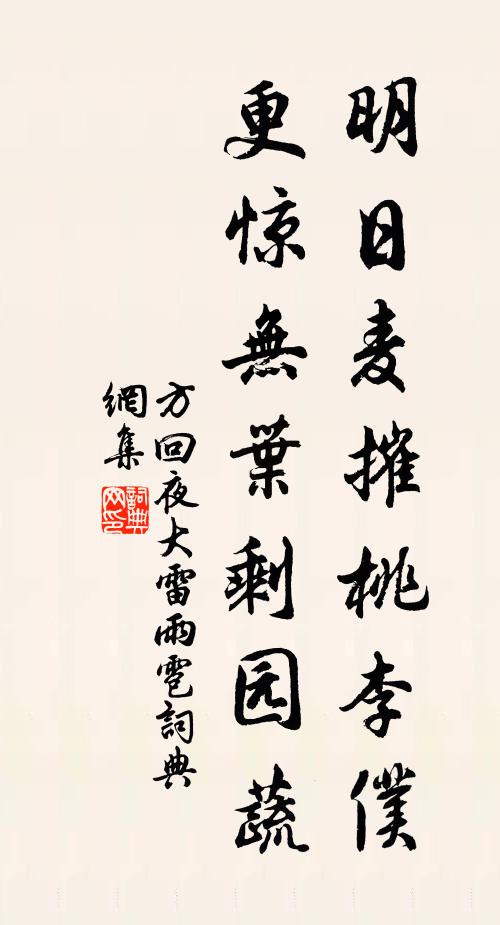 明日麦摧桃李僕
更惊無葉剩园蔬
方回夜大雷雨雹詞典
網集
詞典网印